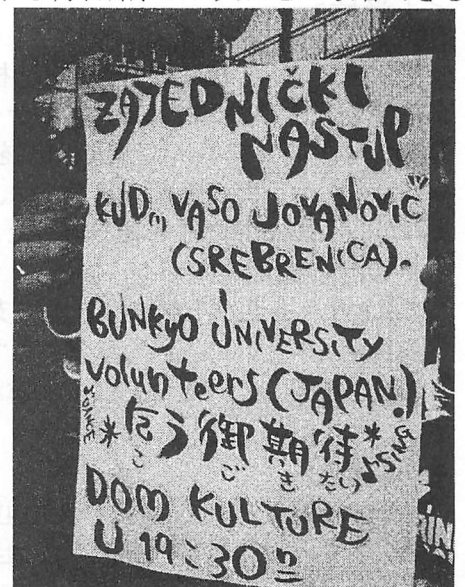 ZAJEDNIČKI
NASTUP
KUD „VASO JOVANOVIĆ"
(SREBRENICA).
BUNKYO UNIVERSITY
volunteers (JAPAN.)
DANCE *危う御期待* ♪SING
こ ご き たい
DOM KULTURE
U 19:30 h